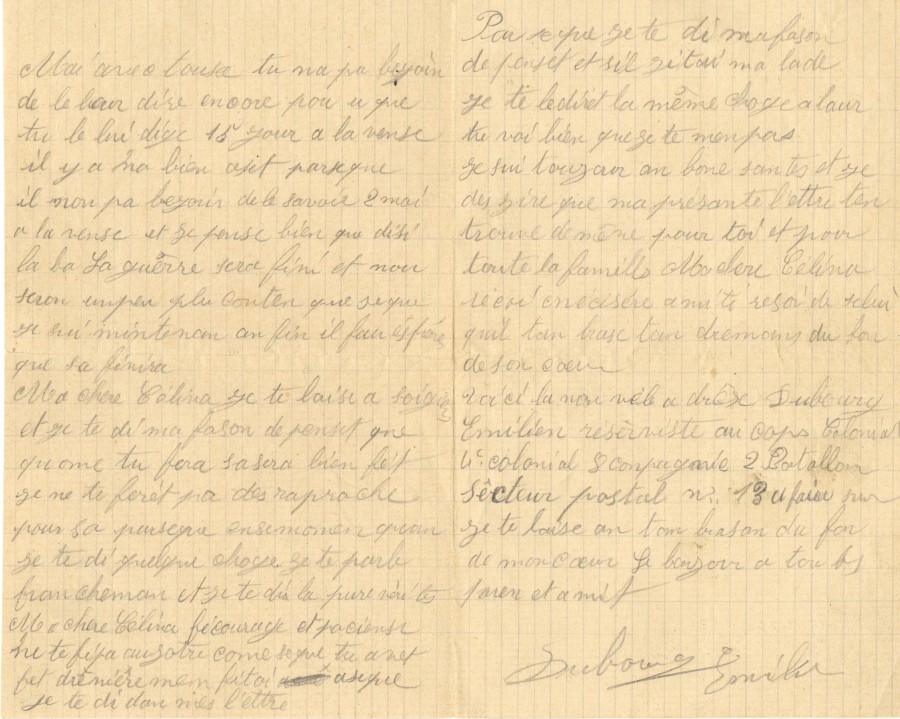 Mai aveo louse tu na pa bezoin
de le leur dire encore pou u que
tu le lui dige 15 jour a la vense
il y a na bien aset parseque
il non pa bezoin de le savoir 2 moi
a la vense et ge pense bien que disi
la ba la guêrre sera fini et nou
seron un peu plu conten que se que
je sui mintenan an fin il fau éspéré
que sa finira
Ma chere Célina ge te laise a soigé
et ge te di ma fason de penset que
quome tu fera sa sera bien fét
ge ne te ferét pa dés raproche
pour sa parseque ensemomen quan
ge te di quelque choge ge te parle
francheman et ge te dis la pure vérités
Ma chere Célina fé courage et paciense
ne te fi pa au zotre come se que tu avet
fet dreniére men fi toi a se que
ge te di dan mes l'ettre
Pou se que ge te di ma fason
de penset et si l' gétai malade
ge te le dirét la même choge a laur
tu voi bien que ge te men pas
ge sui touzour an bone santés et ge
des zire que ma présante l'ettre ten
trouve de même pour toi et pour
toute la famille Ma chere Célina
resoi de selui
qui l' tan brase tan dremans du fon
de son cœur
voici la nou vèle a drèse Dubourg
Emilien resèrviste au cops Colonial
4e colonial 8 conpagnie 2 Batallon
Sêcteur postal n°. 13
ge te laise an tan brasan du for
de mon cœur le bonzour a tou les
paren et amis
Dubourg Emilien